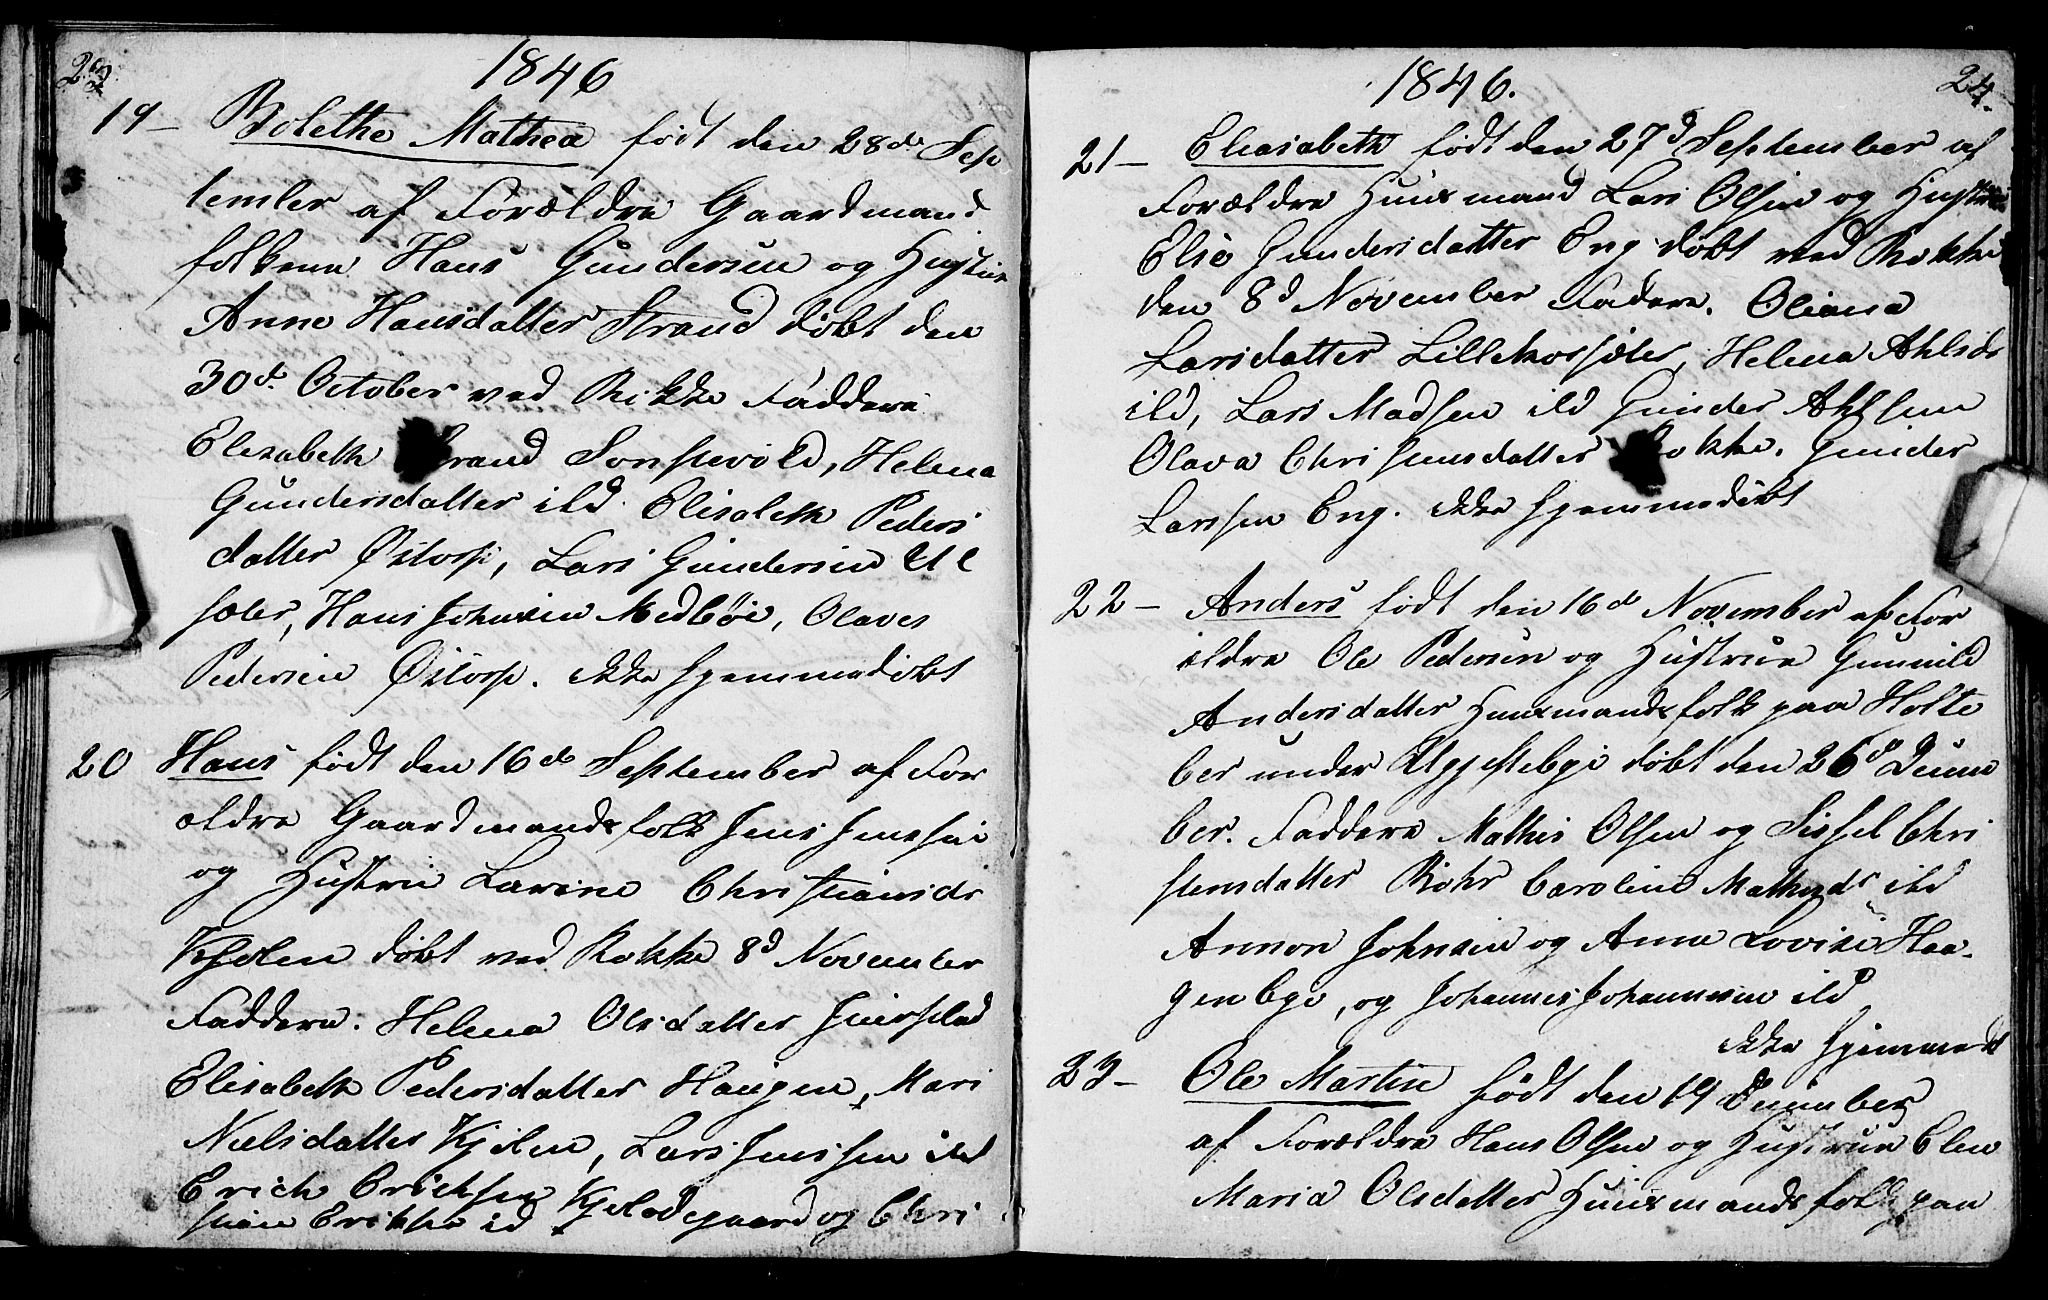 23.
1846
19 - Bolethe Mathea født den 28de Sep
tember af Forældre Gaardmand
folkene Hans Gundersen og Hustrue
Anne Hansdatter Strand døbt den
30de October ved Rokke Faddere
Elisabeth Strand Sonstevold, Helena
Gundersdatter ild. Elisabeth Peders
datter Østorp, Lars Gundersen
sæter, Hans Johnsen Medbøe, Olaves
Pedersen Østorp. ikke hjemmedøbt
20 Hans født den 16de September af For
ældre Gaardmandsfolk Jens Jenssen
og Hustrue Lovine Christiansdr
Kjølen døbt ved Rokke 8d November
Faddere. Helena Olsdatter
Elisabeth Pedersdatter Haugen, Mari
Nielsdatter Kjølen, Lars Jenssen ild
Erich Erichsen Kjeldegaard og Chri
stian Erikke id
1846.
24.
21 - Eleasabeth født den 27d September af
Forældre Huusmand Lars Olsen og Hustrue
Else Gundersdatter Eng døbt ved Rokke
den 8d November Fadere. Oliana
Larsdatter Lillekorsæter, Helena Ahlsdr
ild, Lars Madsen ild Gunder Ahlsen
Olava Christensdatter Rokke. Gunder
Larssen Eng. ikke hjemmedøbt
22 - Anders født den 16de November af For
ældre Ole Pedersen og Hustrue Gunnild
Andersdatter Huusmandsfolk paa Holte
ber under døbt den 26d Decem
ber. Faddere Mathis Olsen og Sissel Chri
stensdatter Rohr Caroline Mathisdr ild
Annon Johnsen og Anne Lovise Haa-
genbye, og Johannes Johannesen ild
ikke hjemmedt
23 - Ole Martin født den 19 December
af Forældre Hans Olsen og Hustrue Elen
Maria Olsdatter Huusmandsfolk paa